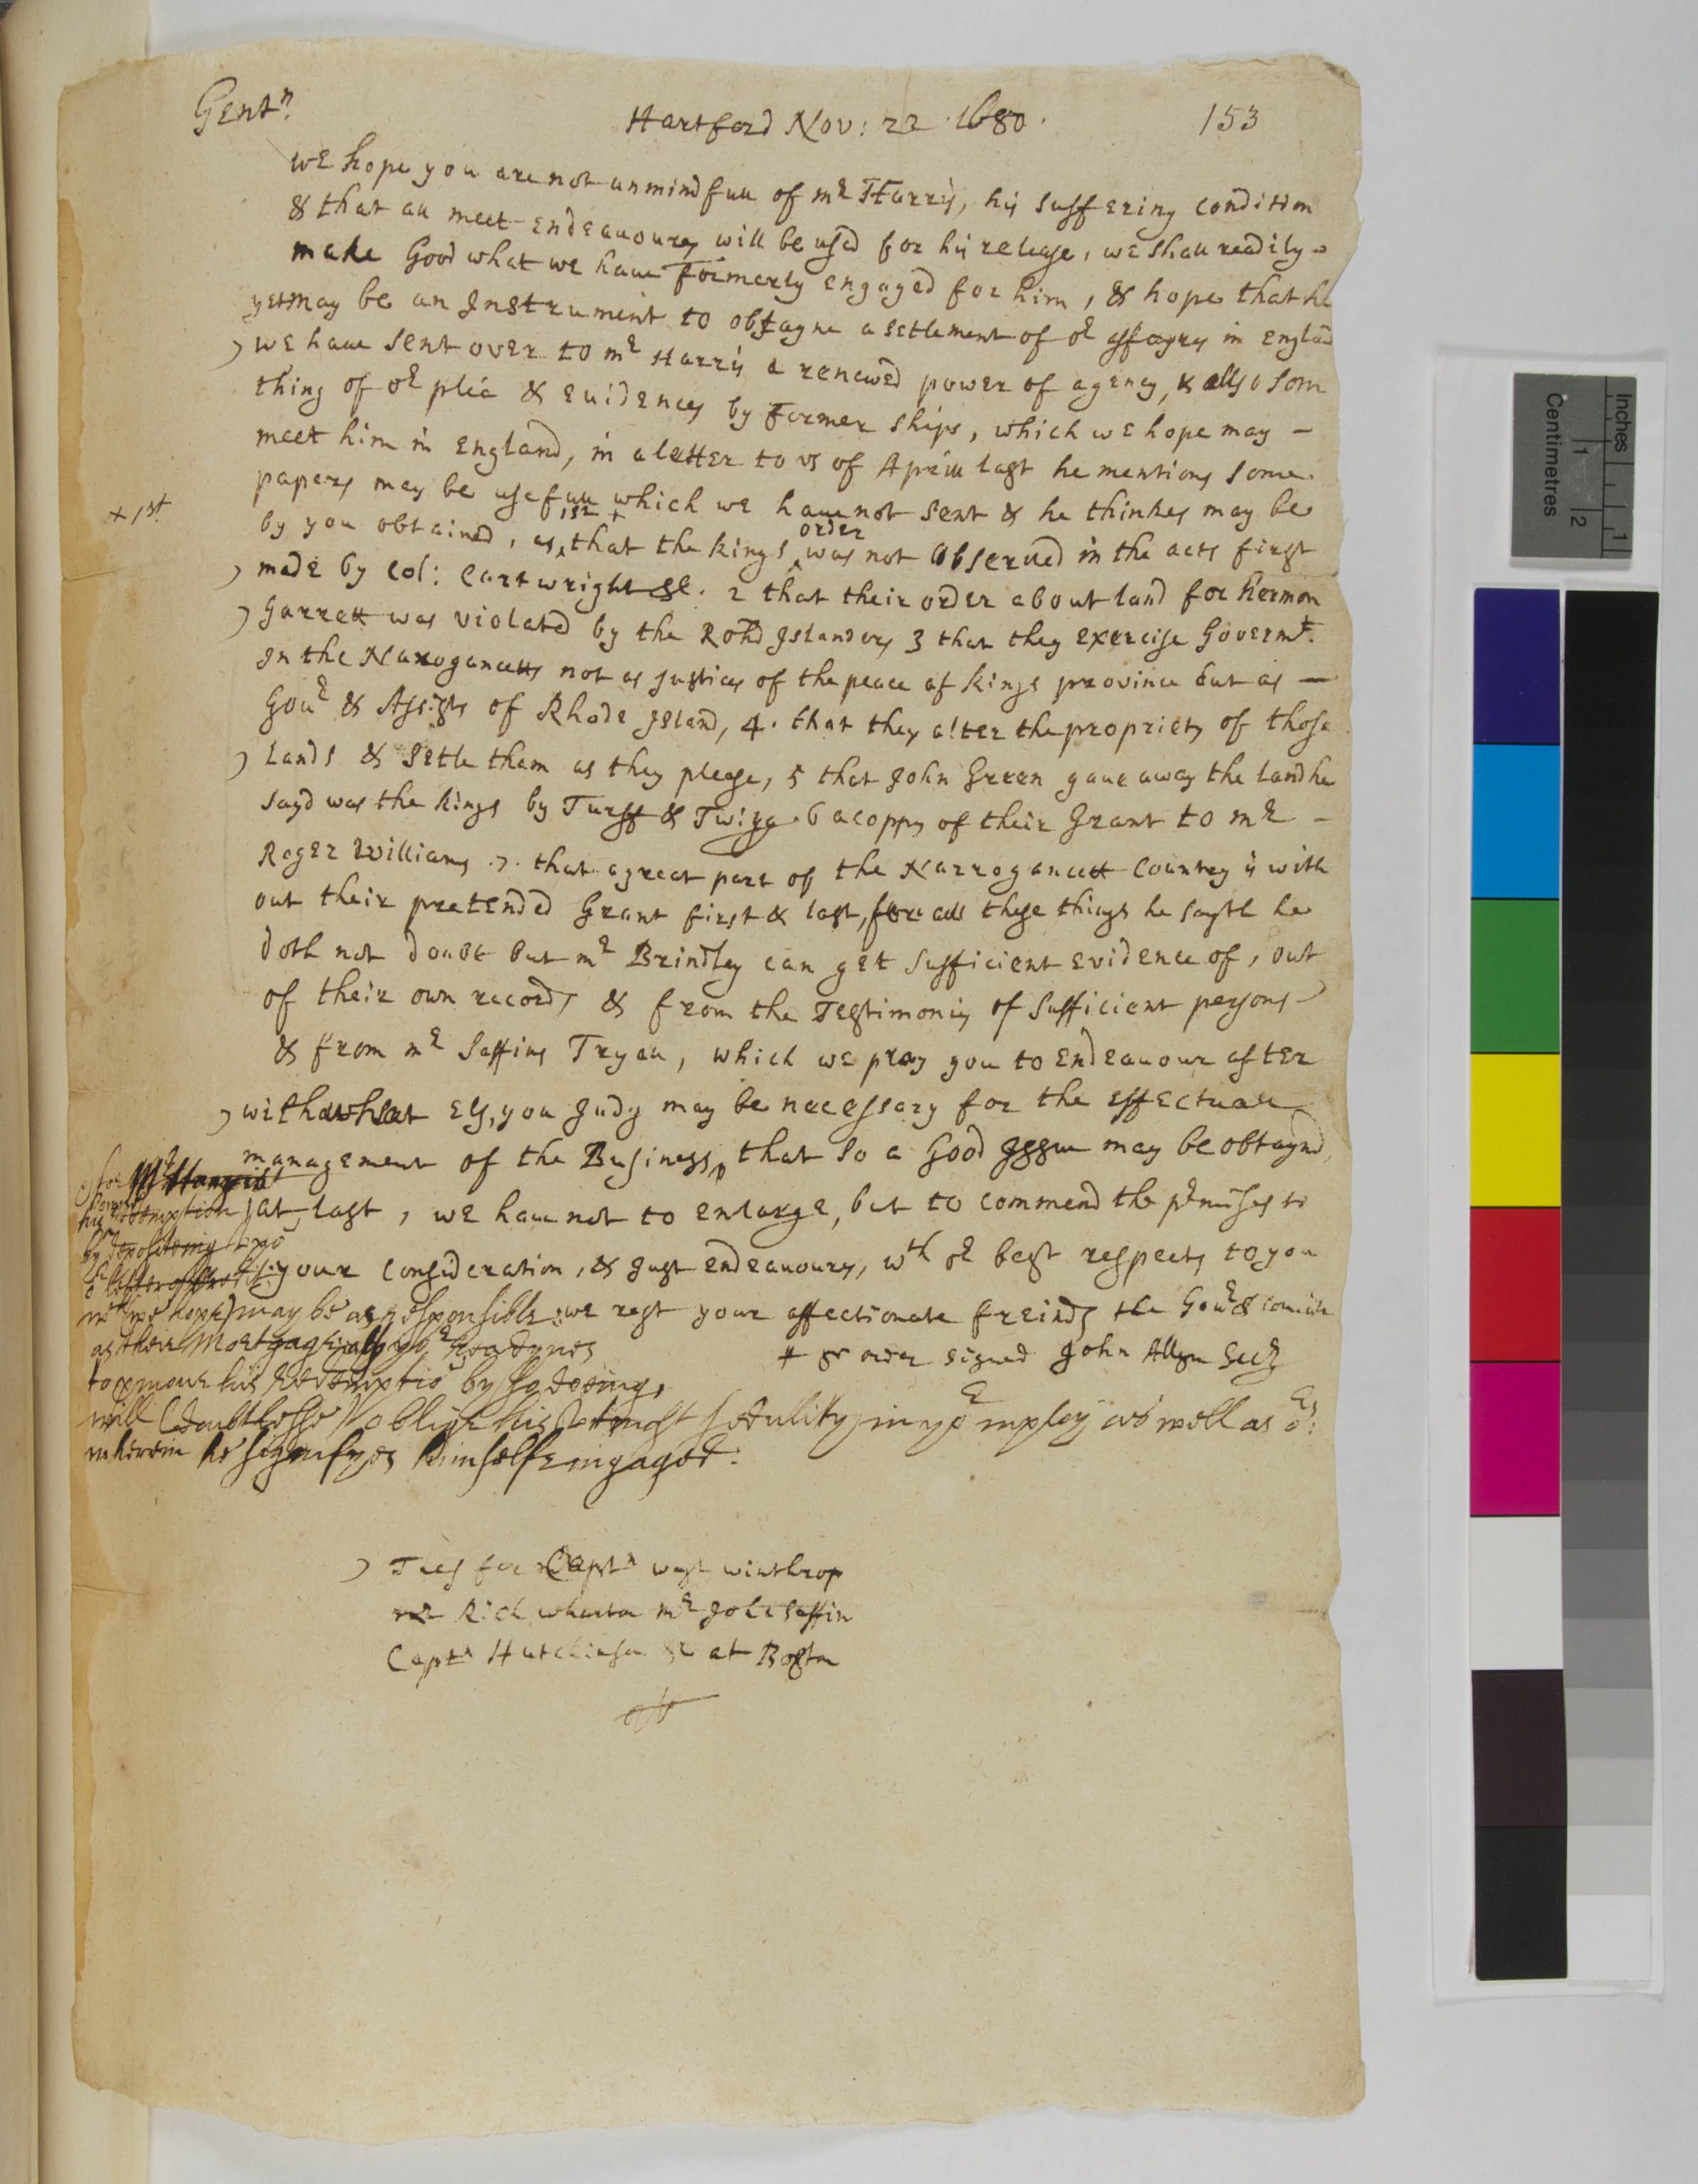 Gentn.
Hartford Nov: 22 1680.
153
we hope you are not unmindfull of mr Harris, his suffering condition
& that all meet endeavours will be used for his release, we shall readily
make Good what we have formerly engaged for him, & hope that he
yet may be an Instrument to obtayne a setlement of or affayrs in England
we have sent over to mr Harris a renewed power of agency, & allso som
thing of or plea & evidences by former ships, which we hope may –
meet him in England, in a letter to us of Aprill last he mentions some
papers may be usefull which we have not sent & he thinkes may be
+ 1st.
by you obtained, as 1st + that the kings order was not observed in the acts first
made by Col: Cartwright &c. 2 that their order about land for Hermon
Garrett was violated by the Rohd Islanders 3 that they exercise Governmt.
In the Narrogancetts not as Justices of the peace of kings province but as –
Gour & Assists of Rhode Island, 4. that they alter the propriety of those
Lands & Setle them as they please, 5 that John Green gave away the land he
sayd was the kings by Turff & Twigg. 6 a coppy of their Grant to mr –
Roger Williams .7. that a great part of the Narrogancett Country is with
out their pretended Grant first & last, all these things he sayth he
doth not doubt but mr Brindley can get sufficient evidence of, out
of their own records & from the Testimonies of sufficient persons
& from mr Saffins Tryall, which we pray you to endeavour after
with what els, you Judg may be necessary for the effectuall
management of the Business, that so a Good Issue may be obtaynd
for Mr Harris
his redemption
at last, we have not to enlarge, but to commend the premises to
by depositing
your consideration, & Just endeavours, wth or best respects to you
may be as responsible
we rest your affectionate freinds the Gour & Councill
as their Mortgage
readynes
pr order signed John Allyn Secr
to promove his redemptio by so doeing,
will (doubtlesse) oblige his utmost in yor employ as well as
wherein he signifyes himselfe ingaged:
Thes for Capt wayt winthrop
mr Rich wharton mr John Saffin
Captn Hutchinson &c at Boston